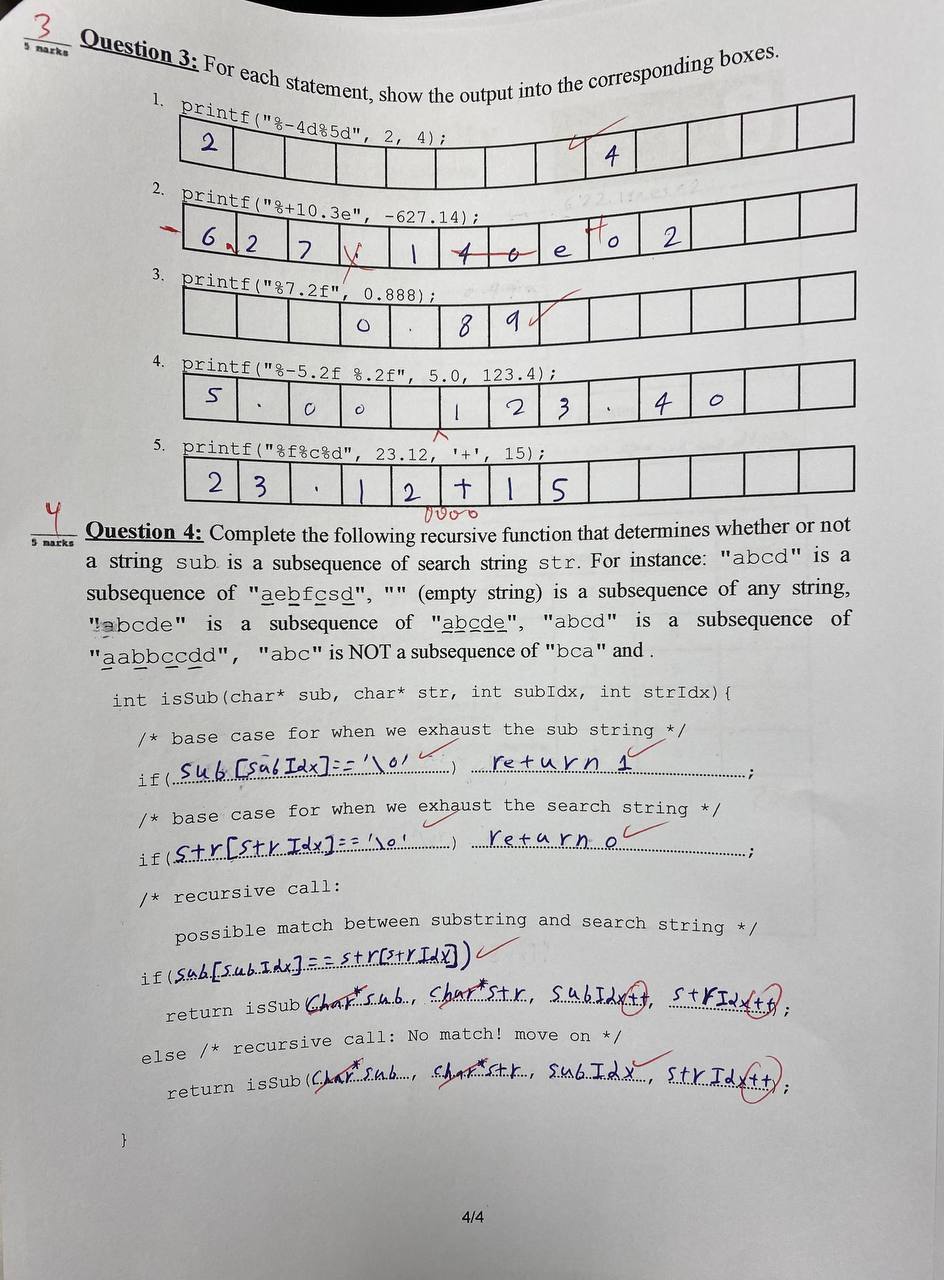 3
5 marks
Question 3: For each statement, show the output into the corresponding boxes.
1. printf("%-4d%5d", 2, 4);
2 4
2. printf("%+10.3e", -627.14);
- 6 . 2 7 . 1 4 0 e + 0 2
3. printf("%7.2f", 0.888);
0 . 8 9
4. printf("%-5.2f %.2f", 5.0, 123.4);
5 . 0 0 1 2 3 . 4 0
5. printf("%f%c%d", 23.12, '+', 15);
2 3 . 1 2 + 1 5
0000
4
5 marks
Question 4: Complete the following recursive function that determines whether or not
a string sub is a subsequence of search string str. For instance: "abcd" is a
subsequence of "aebfcsd", "" (empty string) is a subsequence of any string,
"abcde" is a subsequence of "abcde", "abcd" is a subsequence of
"aabbccdd", "abc" is NOT a subsequence of "bca" and .
int isSub(char* sub, char* str, int subIdx, int strIdx){
/* base case for when we exhaust the sub string */
if(sub[subIdx]=='\0') return 1;
/* base case for when we exhaust the search string */
if(str[strIdx]=='\0') return 0;
/* recursive call:
possible match between substring and search string */
if(sub[subIdx]==str[strIdx])
return isSub(Char*sub, char*str, subIdx++, strIdx++);
else /* recursive call: No match! move on */
return isSub(Char*sub, char*str, subIdx, strIdx++);
}
4/4